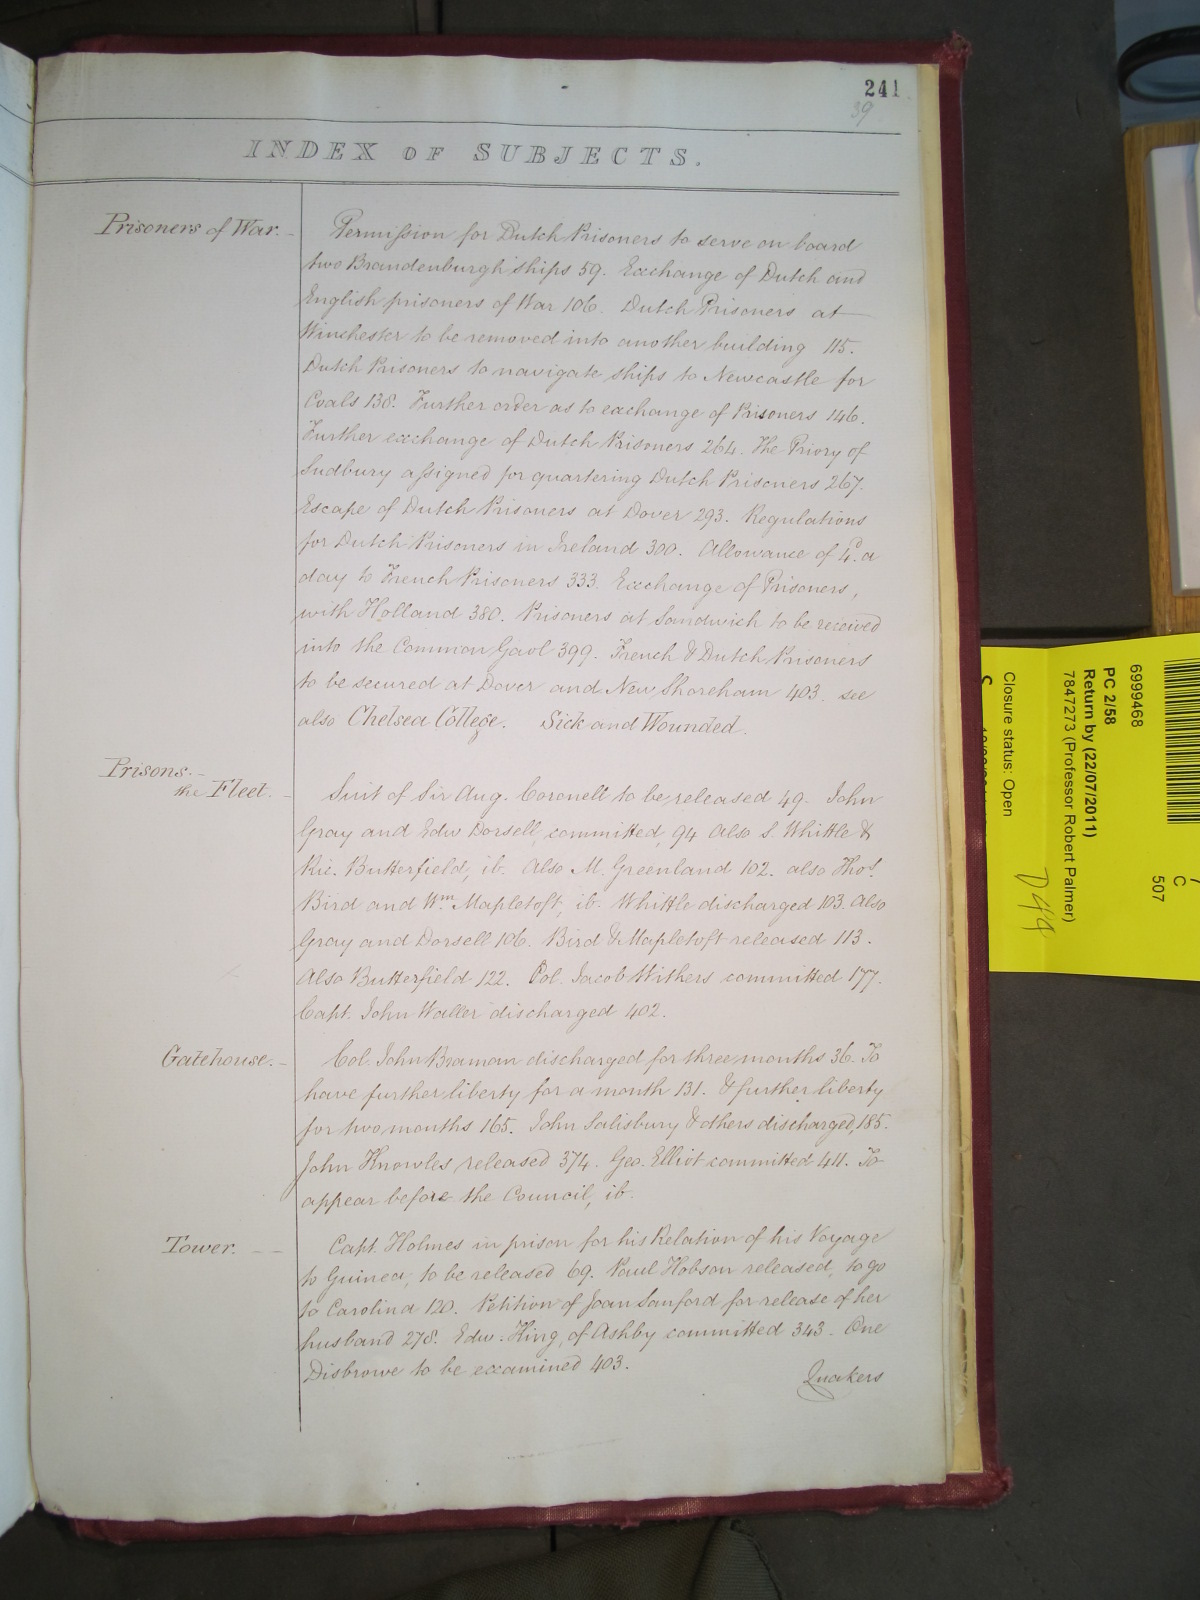 241
39
INDEX OF SUBJECTS.
Prisoners of War. -
Permission for Dutch Prisoners to serve on board
two Brandenburgh ships 59. Exchange of Dutch and
English prisoners of War 106. Dutch Prisoners at
Winchester to be removed into another building 115.
Dutch Prisoners to navigate ships to Newcastle for
Coals 138. Further order as to exchange of Prisoners 146.
Further exchange of Dutch Prisoners 264. The Priory of
Sudbury assigned for quartering Dutch Prisoners 267.
Escape of Dutch Prisoners at Dover 293. Regulations
for Dutch Prisoners in Ireland 300. Allowance of 4d. a
day to French Prisoners 333. Exchange of Prisoners,
with Holland 380. Prisoners at Sandwich to be received
into the Common Gaol 399. French & Dutch Prisoners
to be secured at Dover and New Shoreham 403. see
also Chelsea College. Sick and Wounded.
Prisons. -
the Fleet. -
Suit of Sir Aug. Coronell to be released 49. John
Gray and Edw. Dorsell, committed, 94 Also S. Whittle &
Ric. Butterfield, ib. Also M. Greenland 102. also Thos.
Bird and Wm. Mapletoft, ib. Whittle discharged 103. Also
Gray and Dorsell 106. Bird & Mapletoft released 113.
Also Butterfield 122. Col. Jacob Withers committed 177.
Capt. John Waller discharged 402.
Gatehouse. -
Col. John Braman discharged for three months 36. To
have further liberty for a month 131. & further liberty
for two months 165. John Salisbury & others discharged, 185.
John Knowles released 374. Geo. Elliot committed 411. To
appear before the Council, ib.
Tower. - -
Capt. Holmes in prison for his Relation of his Voyage
to Guinea, to be released 69. Paul Hobson released, to go
to Carolina 120. Petition of Joan Sanford for release of her
husband 278. Edw. King, of Ashby committed 343. One
Disbrowe to be examined 403.
Quakers
6999468
PC 2/58
Return by (22/07/2011)
7847273 (Professor Robert Palmer)
Closure status: Open
C
507
D49